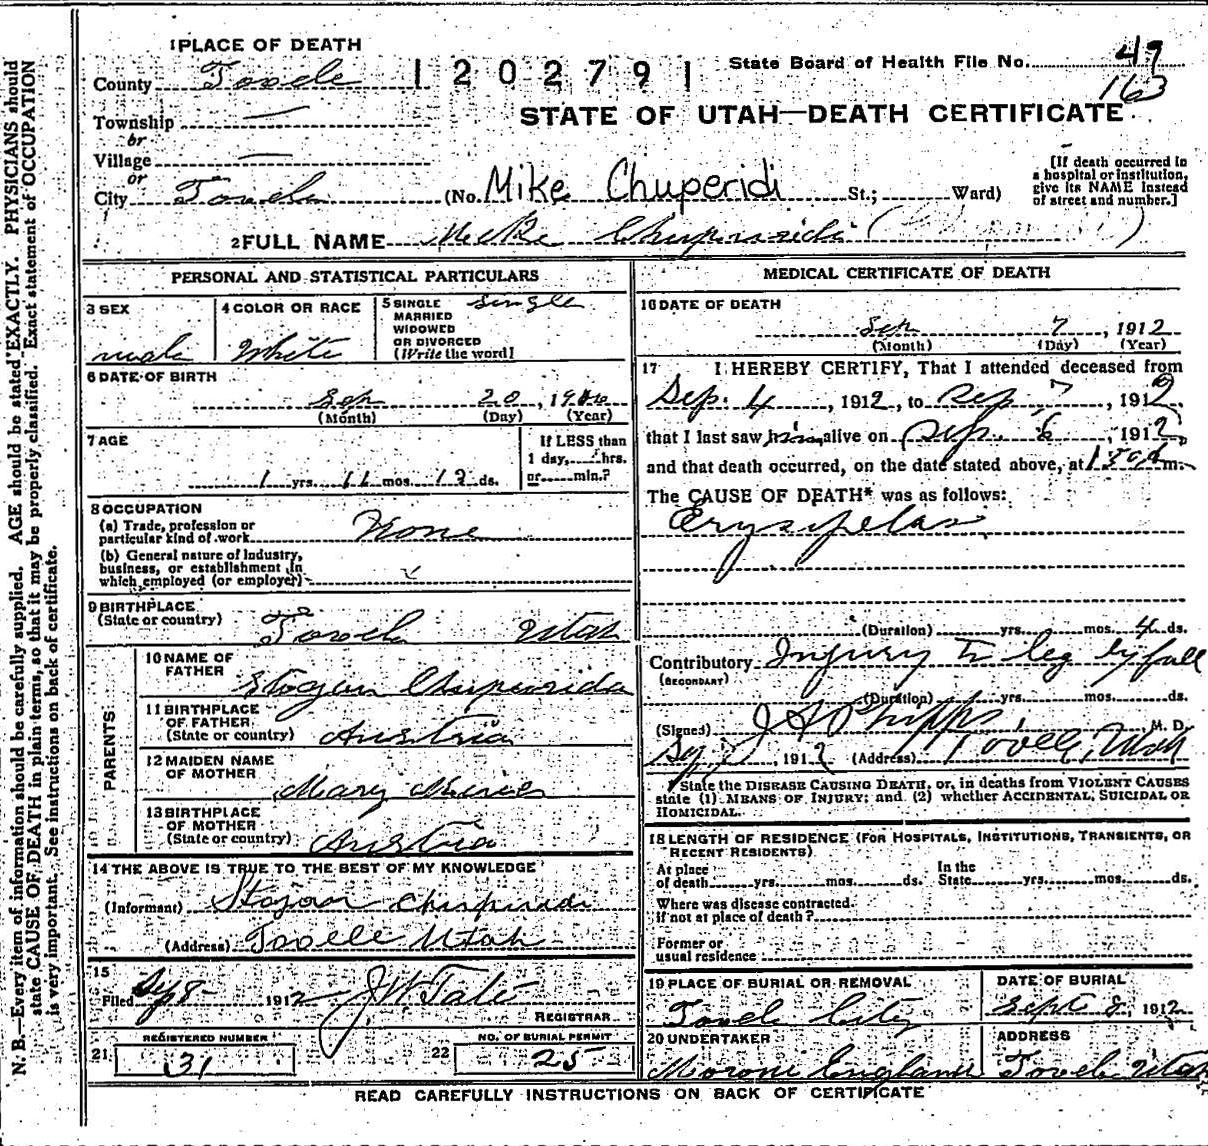 1 PLACE OF DEATH
County Tooele
1202791
State Board of Health File No. 49
163
Township —
STATE OF UTAH—DEATH CERTIFICATE
or
Village —
or
City Tooele (No. Mike Chuperidi St.; Ward)
[If death occurred in a hospital or institution, give its NAME instead of street and number.]
2 FULL NAME Mike
PERSONAL AND STATISTICAL PARTICULARS
3 SEX male
4 COLOR OR RACE White
5 SINGLE MARRIED WIDOWED OR DIVORCED (Write the word) Single
6 DATE OF BIRTH
Sep 20, 19
(Month) (Day) (Year)
7 AGE
1 yrs. 11 mos. ds.
If LESS than
1 day, hrs.
or min.?
8 OCCUPATION
(a) Trade, profession or
particular kind of work None
(b) General nature of industry,
business, or establishment in
which employed (or employer)
9 BIRTHPLACE
(State or country) Tooele Utah
PARENTS
10 NAME OF
FATHER Stojan
11 BIRTHPLACE
OF FATHER
(State or country) Austria
12 MAIDEN NAME
OF MOTHER Mary
13 BIRTHPLACE
OF MOTHER
(State or country) Austria
14 THE ABOVE IS TRUE TO THE BEST OF MY KNOWLEDGE
(Informant) Stojan
(Address) Tooele Utah
15
Filed Sep 8 1912 J W Tate
REGISTRAR
REGISTERED NUMBER
21 31
NO. OF BURIAL PERMIT
22 25
MEDICAL CERTIFICATE OF DEATH
16 DATE OF DEATH
Sep 7, 1912
(Month) (Day) (Year)
17 I HEREBY CERTIFY, That I attended deceased from
Sep. 4, 1912, to Sep 7, 1912,
that I last saw him alive on Sep. 6, 1912,
and that death occurred, on the date stated above, at m.
The CAUSE OF DEATH* was as follows:
Erysipelas
(Duration) yrs. mos. 4 ds.
Contributory Injury to leg by fall
(SECONDARY)
(Duration) yrs. mos. ds.
(Signed) J A Phipps, M. D.
Sep, 1912 (Address) Tooele, Utah
*State the DISEASE CAUSING DEATH, or, in deaths from VIOLENT CAUSES
state (1) MEANS OF INJURY; and (2) whether ACCIDENTAL, SUICIDAL OR
HOMICIDAL.
18 LENGTH OF RESIDENCE (FOR HOSPITALS, INSTITUTIONS, TRANSIENTS, OR
RECENT RESIDENTS)
At place In the
of death yrs. mos. ds. State yrs. mos. ds.
Where was disease contracted
if not at place of death?
Former or
usual residence
19 PLACE OF BURIAL OR REMOVAL
Tooele City
DATE OF BURIAL
Sept 8, 1912
20 UNDERTAKER
Moroni England
ADDRESS
Tooele Utah
READ CAREFULLY INSTRUCTIONS ON BACK OF CERTIFICATE
N. B.—Every item of information should be carefully supplied. AGE should be stated EXACTLY. PHYSICIANS should
state CAUSE OF DEATH in plain terms, so that it may be properly classified. Exact statement of OCCUPATION
is very important. See instructions on back of certificate.